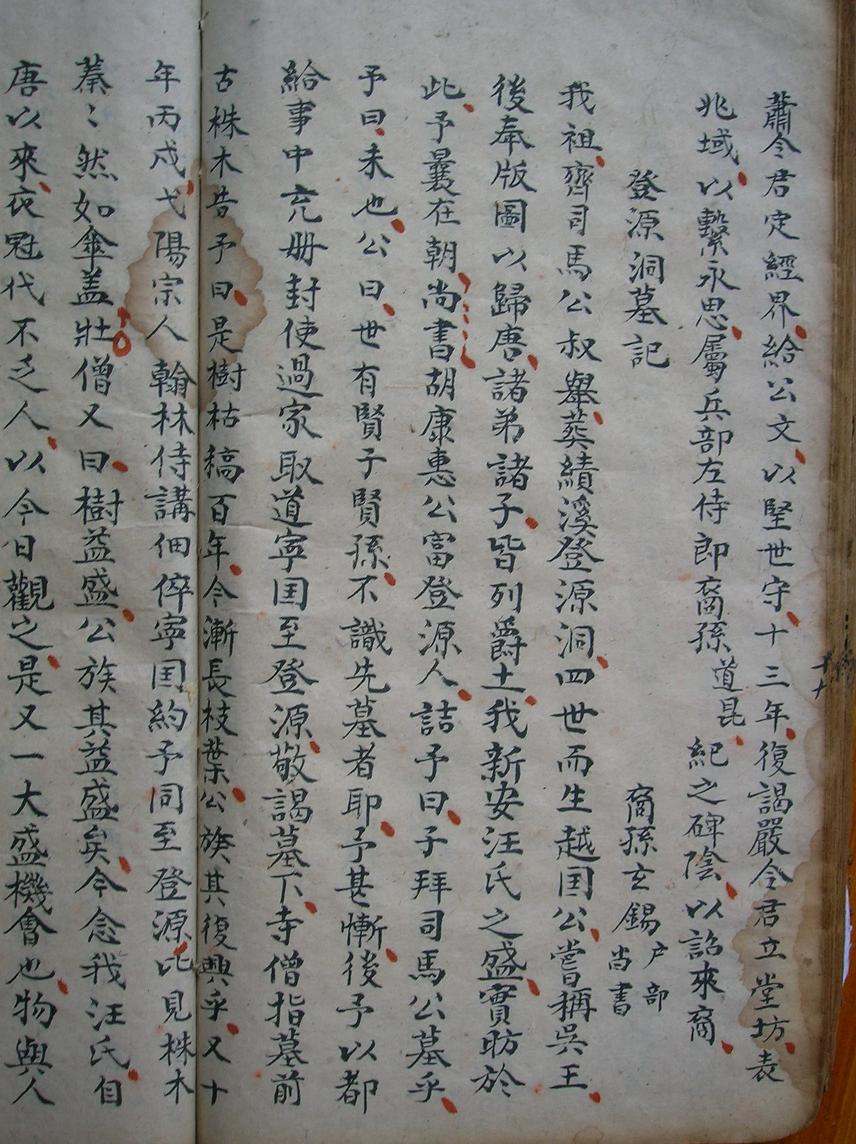 蕭令君定經界給公文以堅世守十三年復謁嚴令君立堂坊表
兆域以繫永思屬兵部左侍郎裔孫道昆紀之碑陰以詔來裔
登源洞墓記 裔孫玄錫户部尚書
我祖齊司馬公叔舉葬績溪登源洞四世而生越国公嘗稱吳王
後奉版圖以歸唐諸弟諸子皆列爵土我新安汪氏之盛實昉於
此予曩在朝尚書胡康惠公富登源人詰予曰子拜司馬公墓乎
予曰未也公曰世有賢子賢孫不識先墓者耶予甚慚後予以都
給事中充册封使過家取道寧国至登源敬謁墓下寺僧指墓前
古株木昔予曰是樹枯稿百年今漸長枝葉公族其復興乎又十
年丙戍弋陽宗人翰林侍講佃倅寧国約予同至登源比見株木
蓁〻然如傘盖壯僧又曰樹益盛公族其益盛矣今念我汪氏自
唐以來衣冠代不乏人以今日觀之是又一大盛機會也物與人